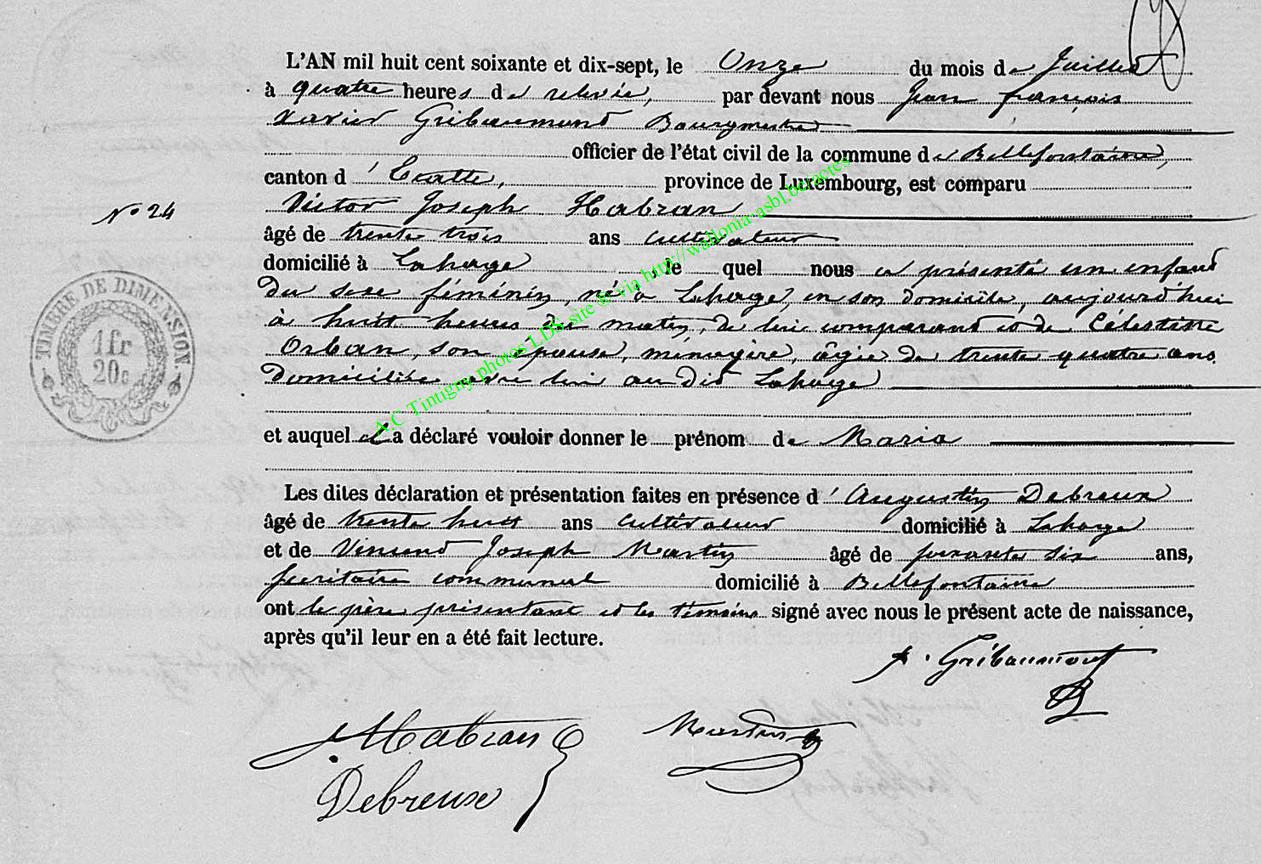 L'AN mil huit cent soixante et dix-sept, le Onze du mois de Juillet
à quatre heures de relevée, par devant nous Jean françois
Xavier Gribaumont Bourgmestre
officier de l'état civil de la commune de Bellefontaine,
canton d'Etalle, province de Luxembourg, est comparu
N° 24
Victor Joseph Habran
âgé de trente trois ans cultivateur
domicilié à Lahage, le quel nous a présenté un enfant
du sexe féminin, né à Lahage, en son domicile, aujourd'hui
à huit heures du matin, de lui comparant et de Célestine
Orban, son épouse, ménagère, âgée de trente quatre ans
domiciliée avec lui audit Lahage
TIMBRE DE DIMENSION.
1fr
20c
et auquel il a déclaré vouloir donner le prénom de Maria
Les dites déclaration et présentation faites en présence d'Augustin Debreux
âgé de trente huit ans cultivateur domicilié à Lahage
et de Vincent Joseph Martin âgé de ans,
secrétaire communal domicilié à Bellefontaine
ont le père présentant et les témoins signé avec nous le présent acte de naissance,
après qu'il leur en a été fait lecture.
Gribaumont
J. Habran
Martin
Debreux
A.C Tintigny photos LDS site & via http://wallonia-asbl.be/actes